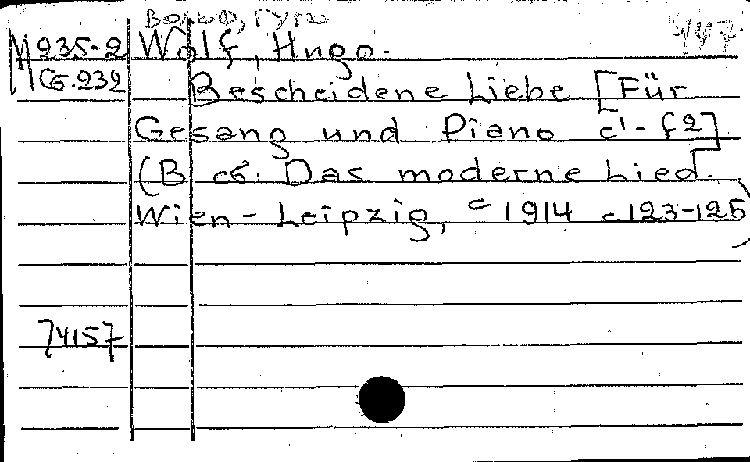 Вольф, Гуго
447
М 935-2 Wolf, Hugo.
М Сб.232 Bescheidene Liebe [Für
Gesang und Piano c¹-f²].
(В сб: Das moderne Lied.
Wien-Leipzig, c 1914 с 123-125)
74157